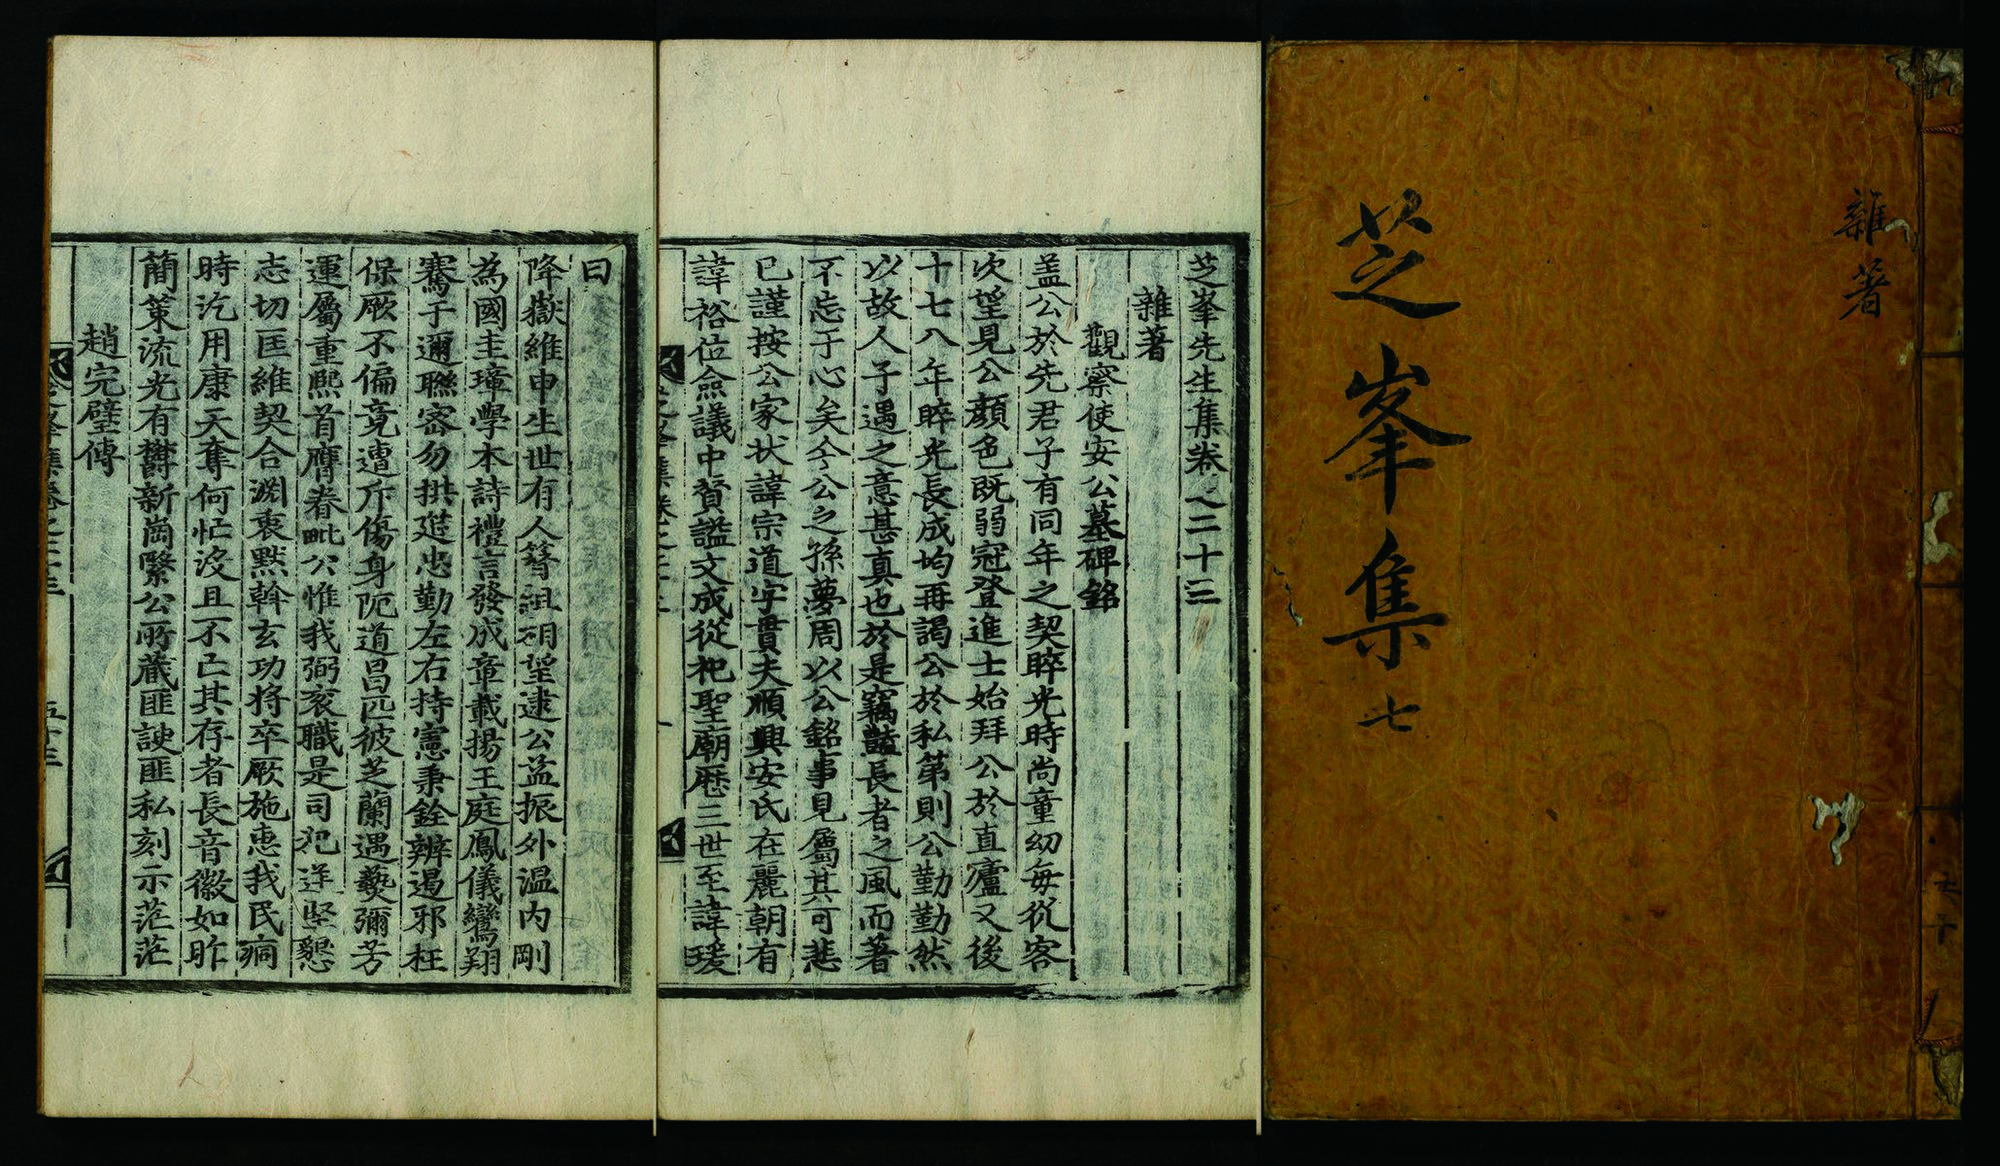 雜著
芝峯集 七
芝峯先生集卷之二十三
雜著
觀察使安公墓碑銘
盖公於先君子有同年之契睟光時尚童幼每從客
次望見公顔色旣弱冠登進士始拜公於直廬又後
十七八年睟光長成均再謁公於私第則公勤勤然
以故人子遇之意甚真也於是竊艷長者之風而著
不忘于心矣今公之孫夢周以公銘事見屬其可悲
已謹按公家状諱宗道字貫夫順興安氏在麗朝有
諱裕位僉議中贊謚文成從祀聖廟歷三世至諱瑗
曰
降嶽維申生世有人簪組相望逮公益振外溫内剛
為國圭璋學本詩禮言發成章載揚王庭鳳儀鸞翔
騫于邇聯密勿拱逛忠勤左右持憲秉銓辨遏邪枉
保厥不偏竟遭斥傷身阨道昌匹彼芝蘭遇爇彌芳
運屬重熙首膺眷毗公惟我弼袞職是司犯逆堅懇
志切匡維契合淵衷默斡玄功将卒厥施惠我民痌
時汔用康天奪何忙沒且不亡其存者長音徽如昨
簡策流光有欝新崗繄公所藏匪諛匪私刻示茫茫
趙完璧傳
五十三